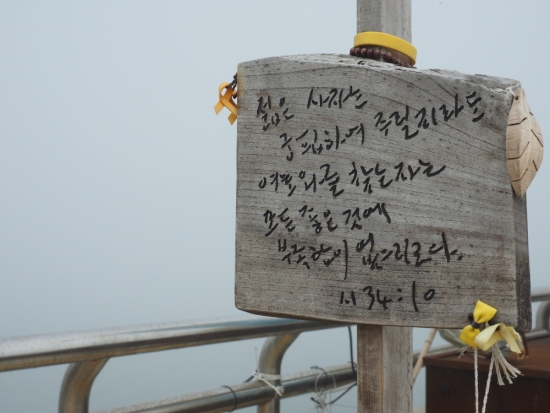 젊은 사자는
궁핍하여 주릴지라도
여호와를 찾는 자는
모든 좋은 것에
부족함이 없으리로다.
시 34:10